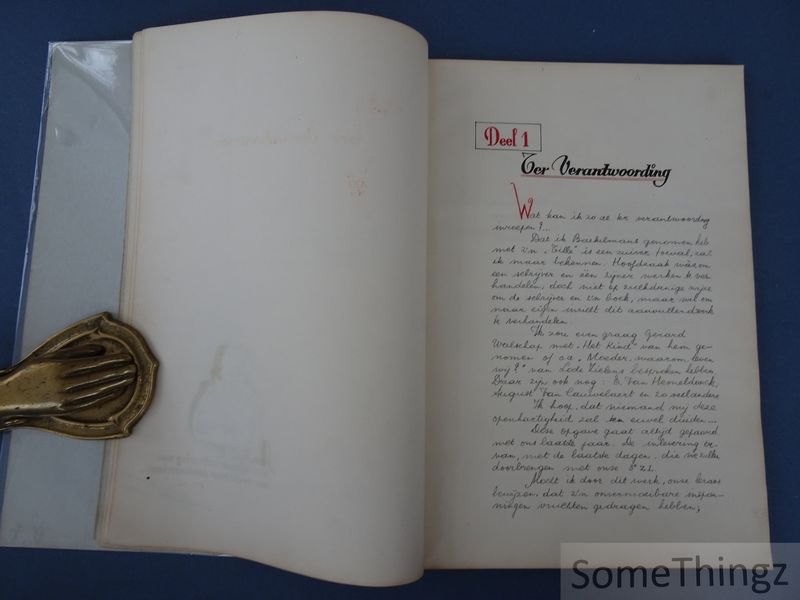 Deel 1
Ter Verantwoording
Wat kan ik zo al ter verantwoording
inroepen?...
Dat ik Baekelmans genomen heb
met z'n "Tille" is een zuiver toeval, zal
ik maar bekennen. Hoofdzaak was om
een schrijver en één zijner werken te ver-
handelen, doch niet op zulkdanige wijze
om de schrijver en z'n boek, maar wel om
naar eigen inzicht dit
te verhandelen.
Ik zou even graag Gerard
Walschap met "Het Kind" van hem ge-
nomen of o.a. "Moeder, waarom leven
wij?" van Lode Zielens besproken hebben.
Daar zijn ook nog: E. Van Hemeldonck,
August Van Cauwelaert en zo veel andere
Ik hoop, dat niemand mij deze
openhartigheid zal ten euvel duiden...
Deze opgave gaat altijd gepaard
met ons laatste jaar. De inlevering er-
van, met de laatste dagen die we zullen
doorbrengen met onze
Mocht ik door dit werk, onze leraar
bewijzen, dat z'n onvermoeibare inspan-
ningen vruchten gedragen hebben,
SomeThingz